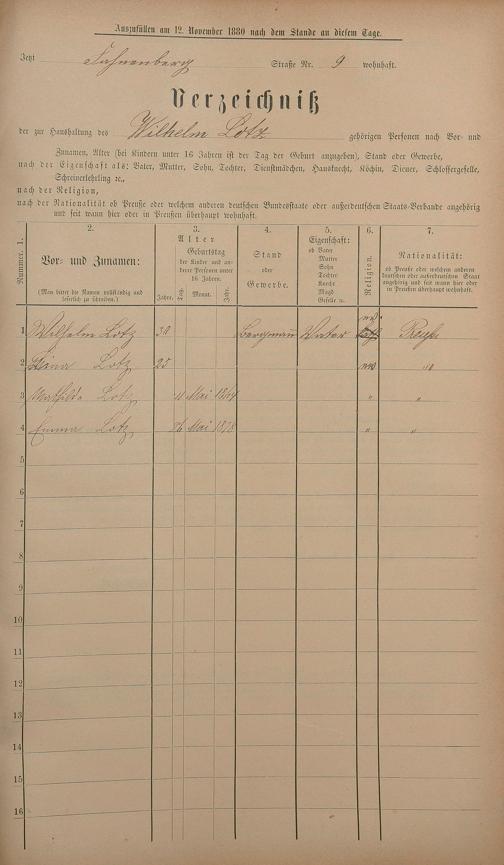 Auszufüllen am 12. November 1880 nach dem Stande an diesem Tage.
Jetzt Fahnenberg Straße Nr. 9 wohnhaft.
Verzeichniß
der zur Haushaltung des Wilhelm Lotz gehörigen Personen nach Vor- und
Zunamen, Alter (bei Kindern unter 16 Jahren ist der Tag der Geburt anzugeben), Stand oder Gewerbe,
nach der Eigenschaft als: Vater, Mutter, Sohn, Tochter, Dienstmädchen, Hausknecht, Köchin, Diener, Schlossergeselle,
Schreinerlehrling ꝛc.,
nach der Religion,
nach der Nationalität ob Preuße oder welchem anderen deutschen Bundesstaate oder außerdeutschen Staats-Verbande angehörig
und seit wann hier oder in Preußen überhaupt wohnhaft.
Nummer. 1.
2.
Vor- und Zunamen:
(Man bittet die Namen vollständig und
leserlich zu schreiben.)
3.
Alter
Geburtstag
der Kinder und an-
derer Personen unter
16 Jahren.
Jahre. Tag. Monat. Jahr.
4.
Stand
oder
Gewerbe.
5.
Eigenschaft:
ob Vater
Mutter
Sohn
Tochter
Knecht
Magd
Geselle ꝛc.
6.
Religion.
7.
Nationalität:
ob Preuße oder welchem anderen
deutschen oder außerdeutschen Staat
angehörig und seit wann hier oder
in Preußen überhaupt wohnhaft.
1 Wilhelm Lotz 30 Bergmann Vater Preuße
2 Lotz 25 "
3 Mathilde Lotz 11 Mai "  "
4 Emma Lotz Mai 1878 " "
5
6
7
8
9
10
11
12
13
14
15
16